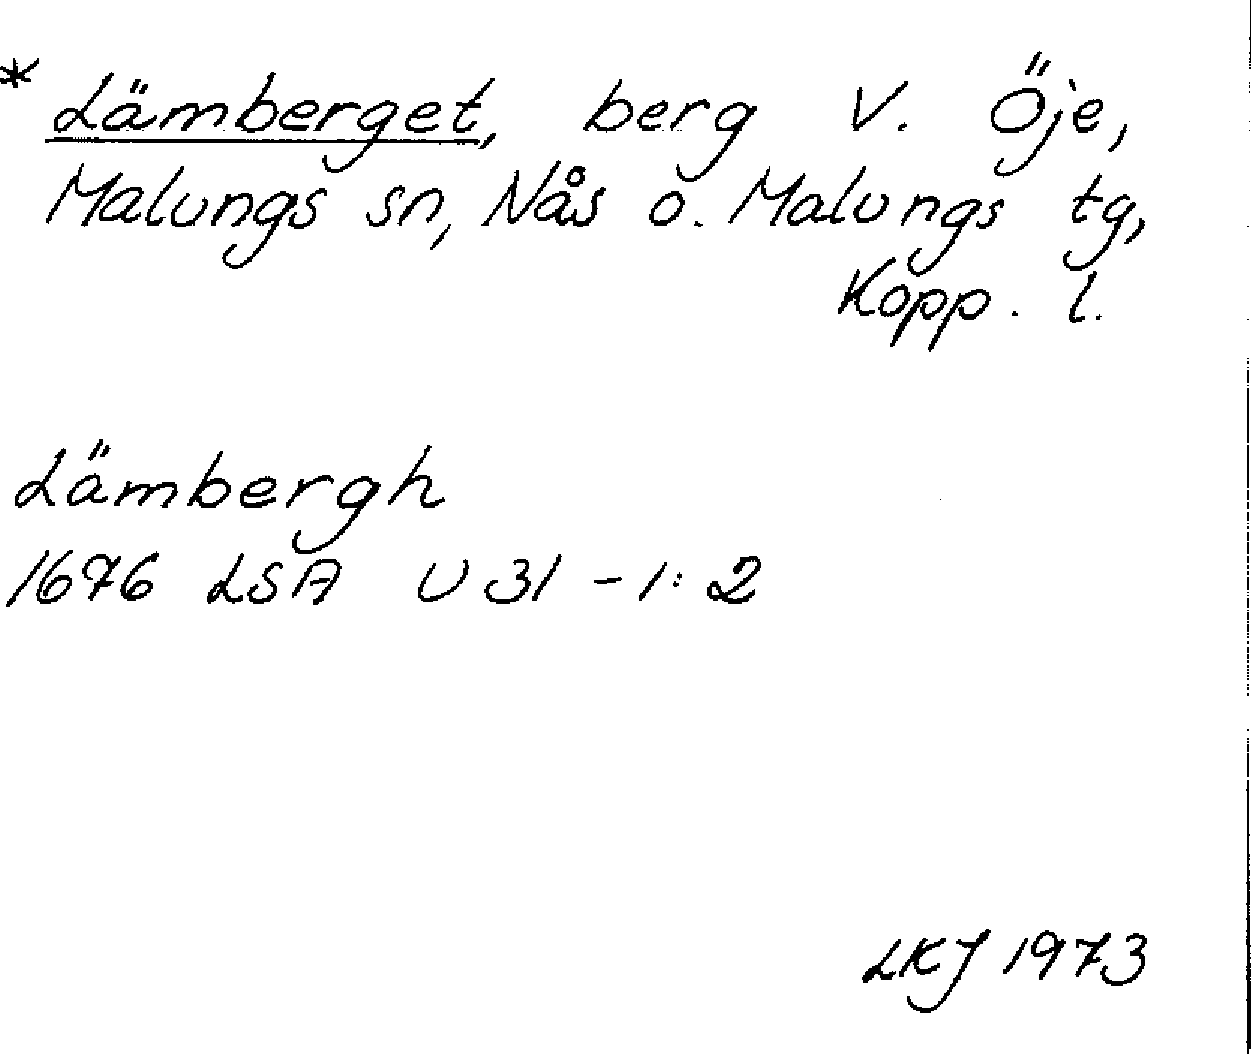 * Lämberget, berg V. Öje,
Malungs sn, Nås o. Malungs tg,
Kopp. l.
Lämbergh
1676 LSA U 31 - 1:2
LKJ 1973